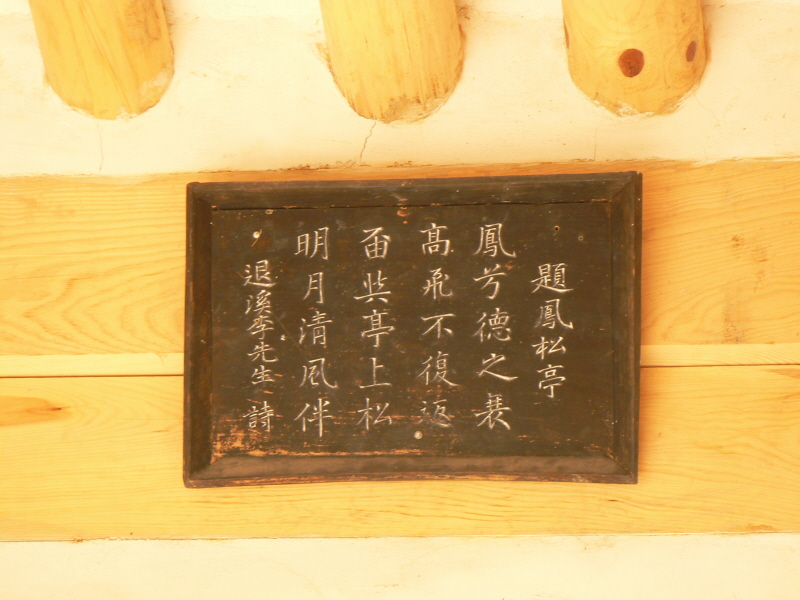 題鳳松亭
鳳兮德之衰
高飛不復返
留與亭上松
明月清風伴
退溪李先生 詩